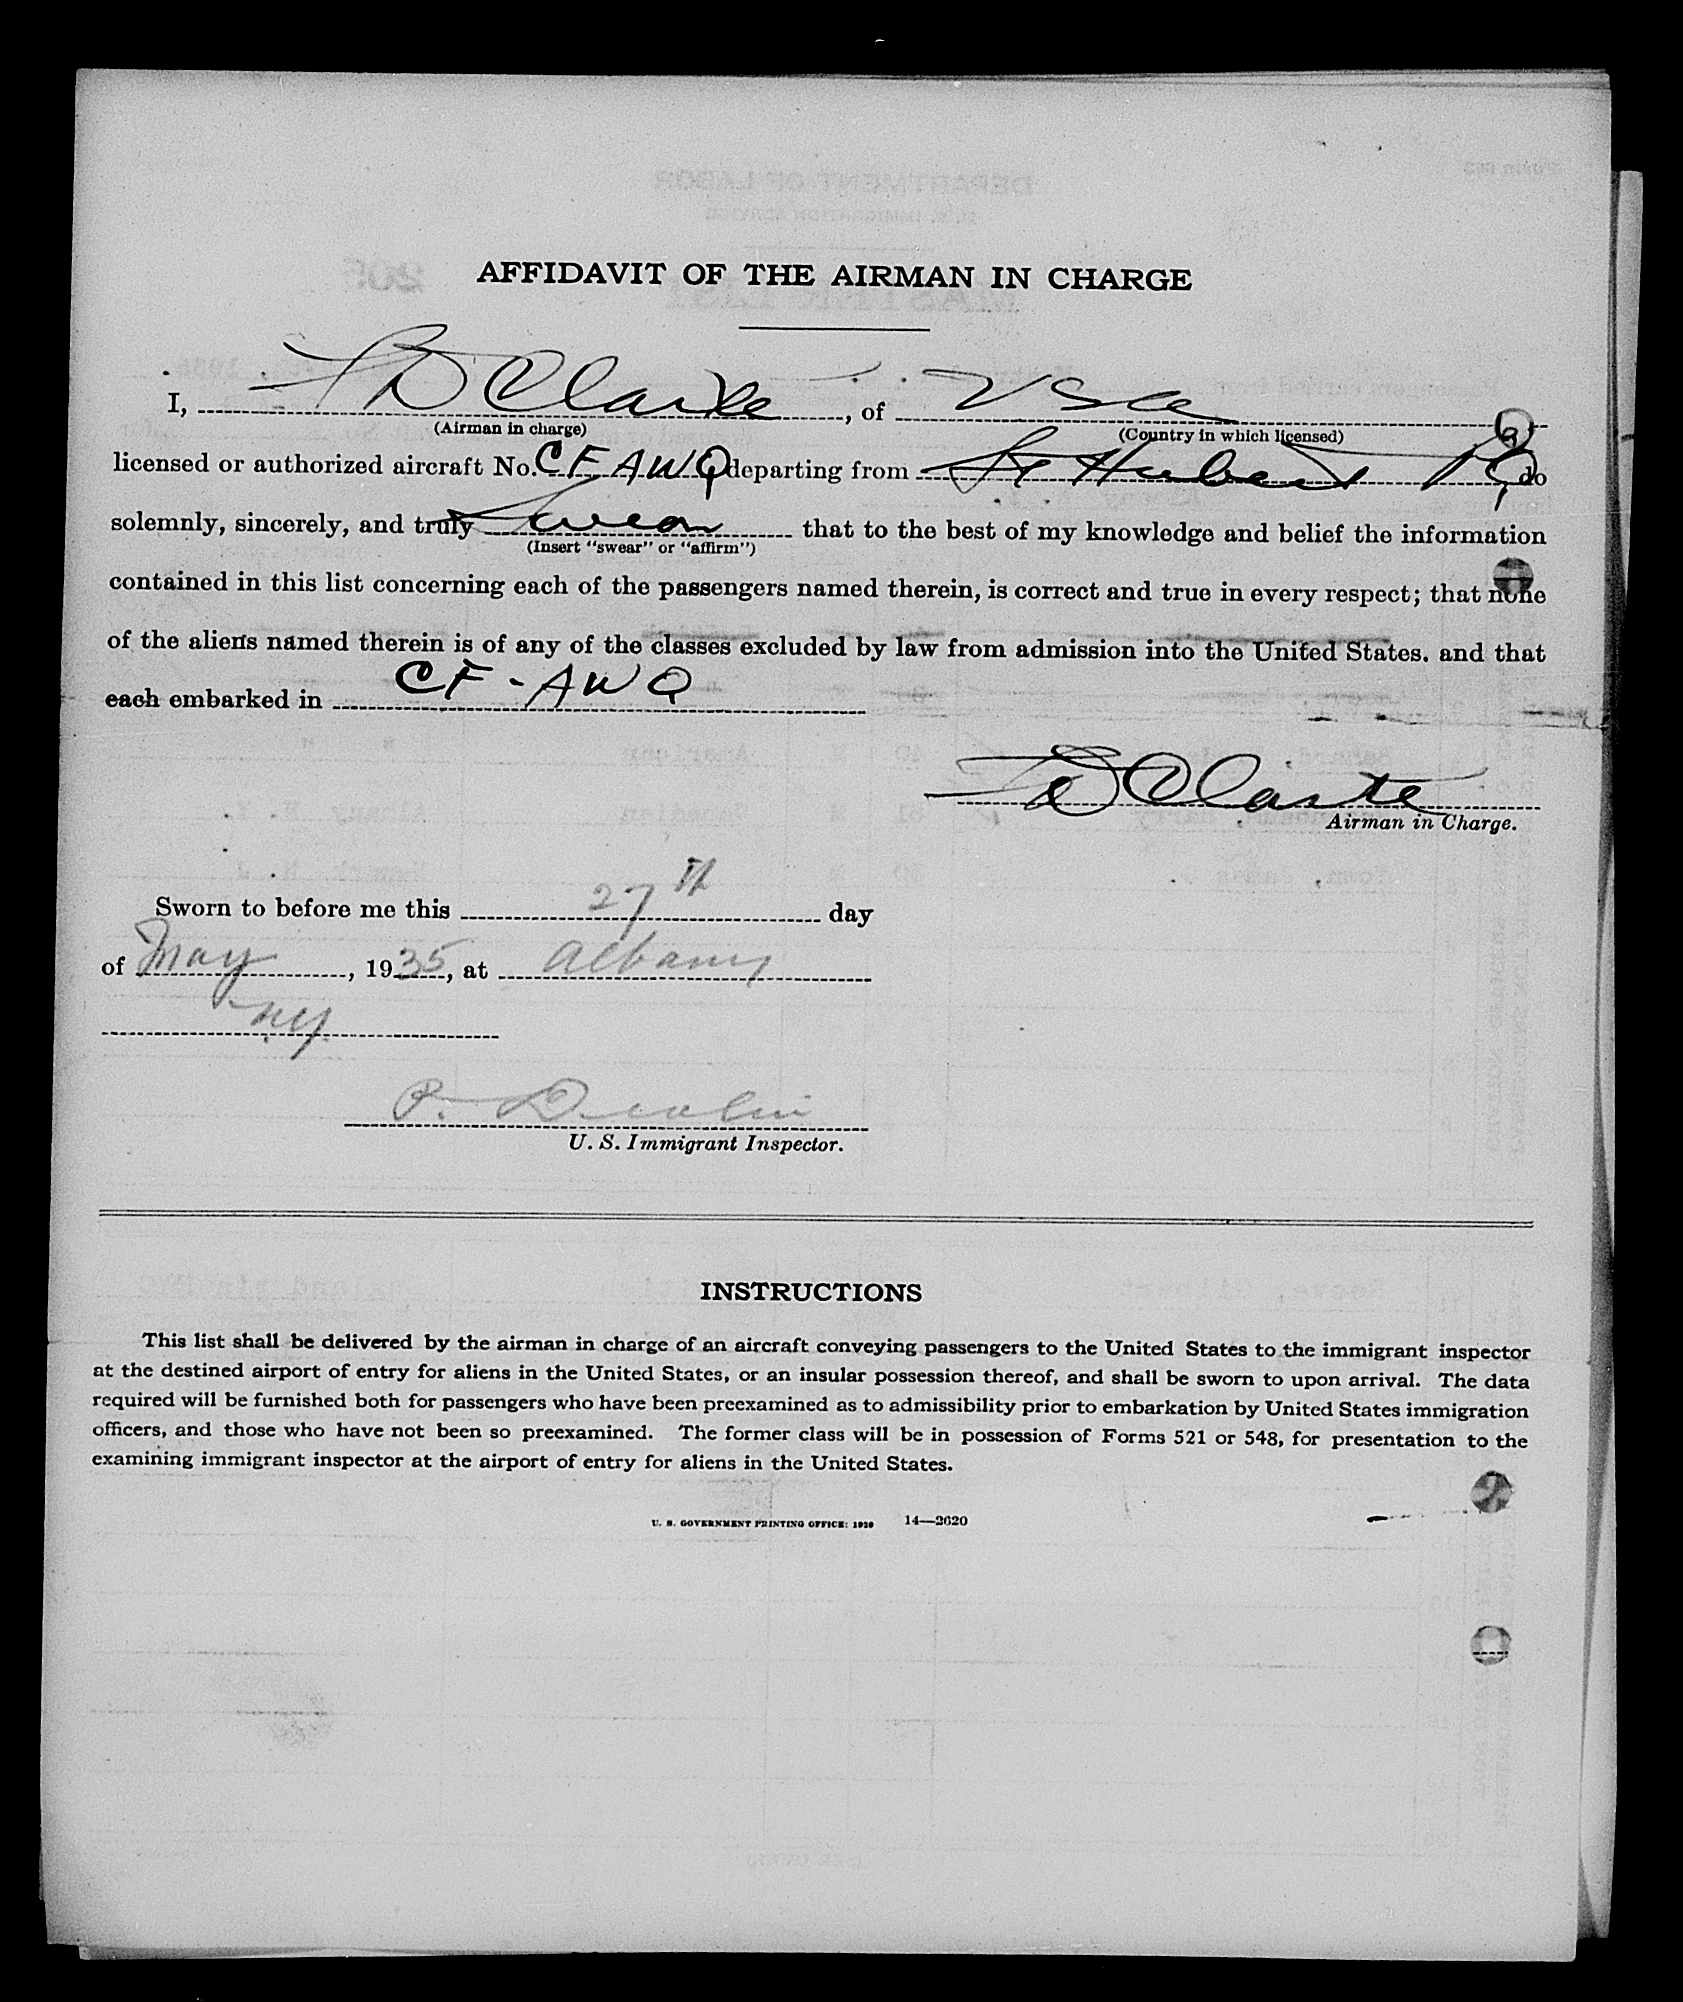 AFFIDAVIT OF THE AIRMAN IN CHARGE
I, D Clarke, of USA
(Airman in charge) (Country in which licensed)
licensed or authorized aircraft No. CF AWQ departing from St Hubert P Q do
solemnly, sincerely, and truly swear that to the best of my knowledge and belief the information
(Insert "swear" or "affirm")
contained in this list concerning each of the passengers named therein, is correct and true in every respect; that none
of the aliens named therein is of any of the classes excluded by law from admission into the United States. and that
each embarked in CF-AWQ
D Clarke
Airman in Charge.
Sworn to before me this 27th day
of May, 1935, at Albany
NY.
P. Devlin
U. S. Immigrant Inspector.
INSTRUCTIONS
This list shall be delivered by the airman in charge of an aircraft conveying passengers to the United States to the immigrant inspector
at the destined airport of entry for aliens in the United States, or an insular possession thereof, and shall be sworn to upon arrival. The data
required will be furnished both for passengers who have been preexamined as to admissibility prior to embarkation by United States immigration
officers, and those who have not been so preexamined. The former class will be in possession of Forms 521 or 548, for presentation to the
examining immigrant inspector at the airport of entry for aliens in the United States.
U. S. GOVERNMENT PRINTING OFFICE: 1929 14—2620